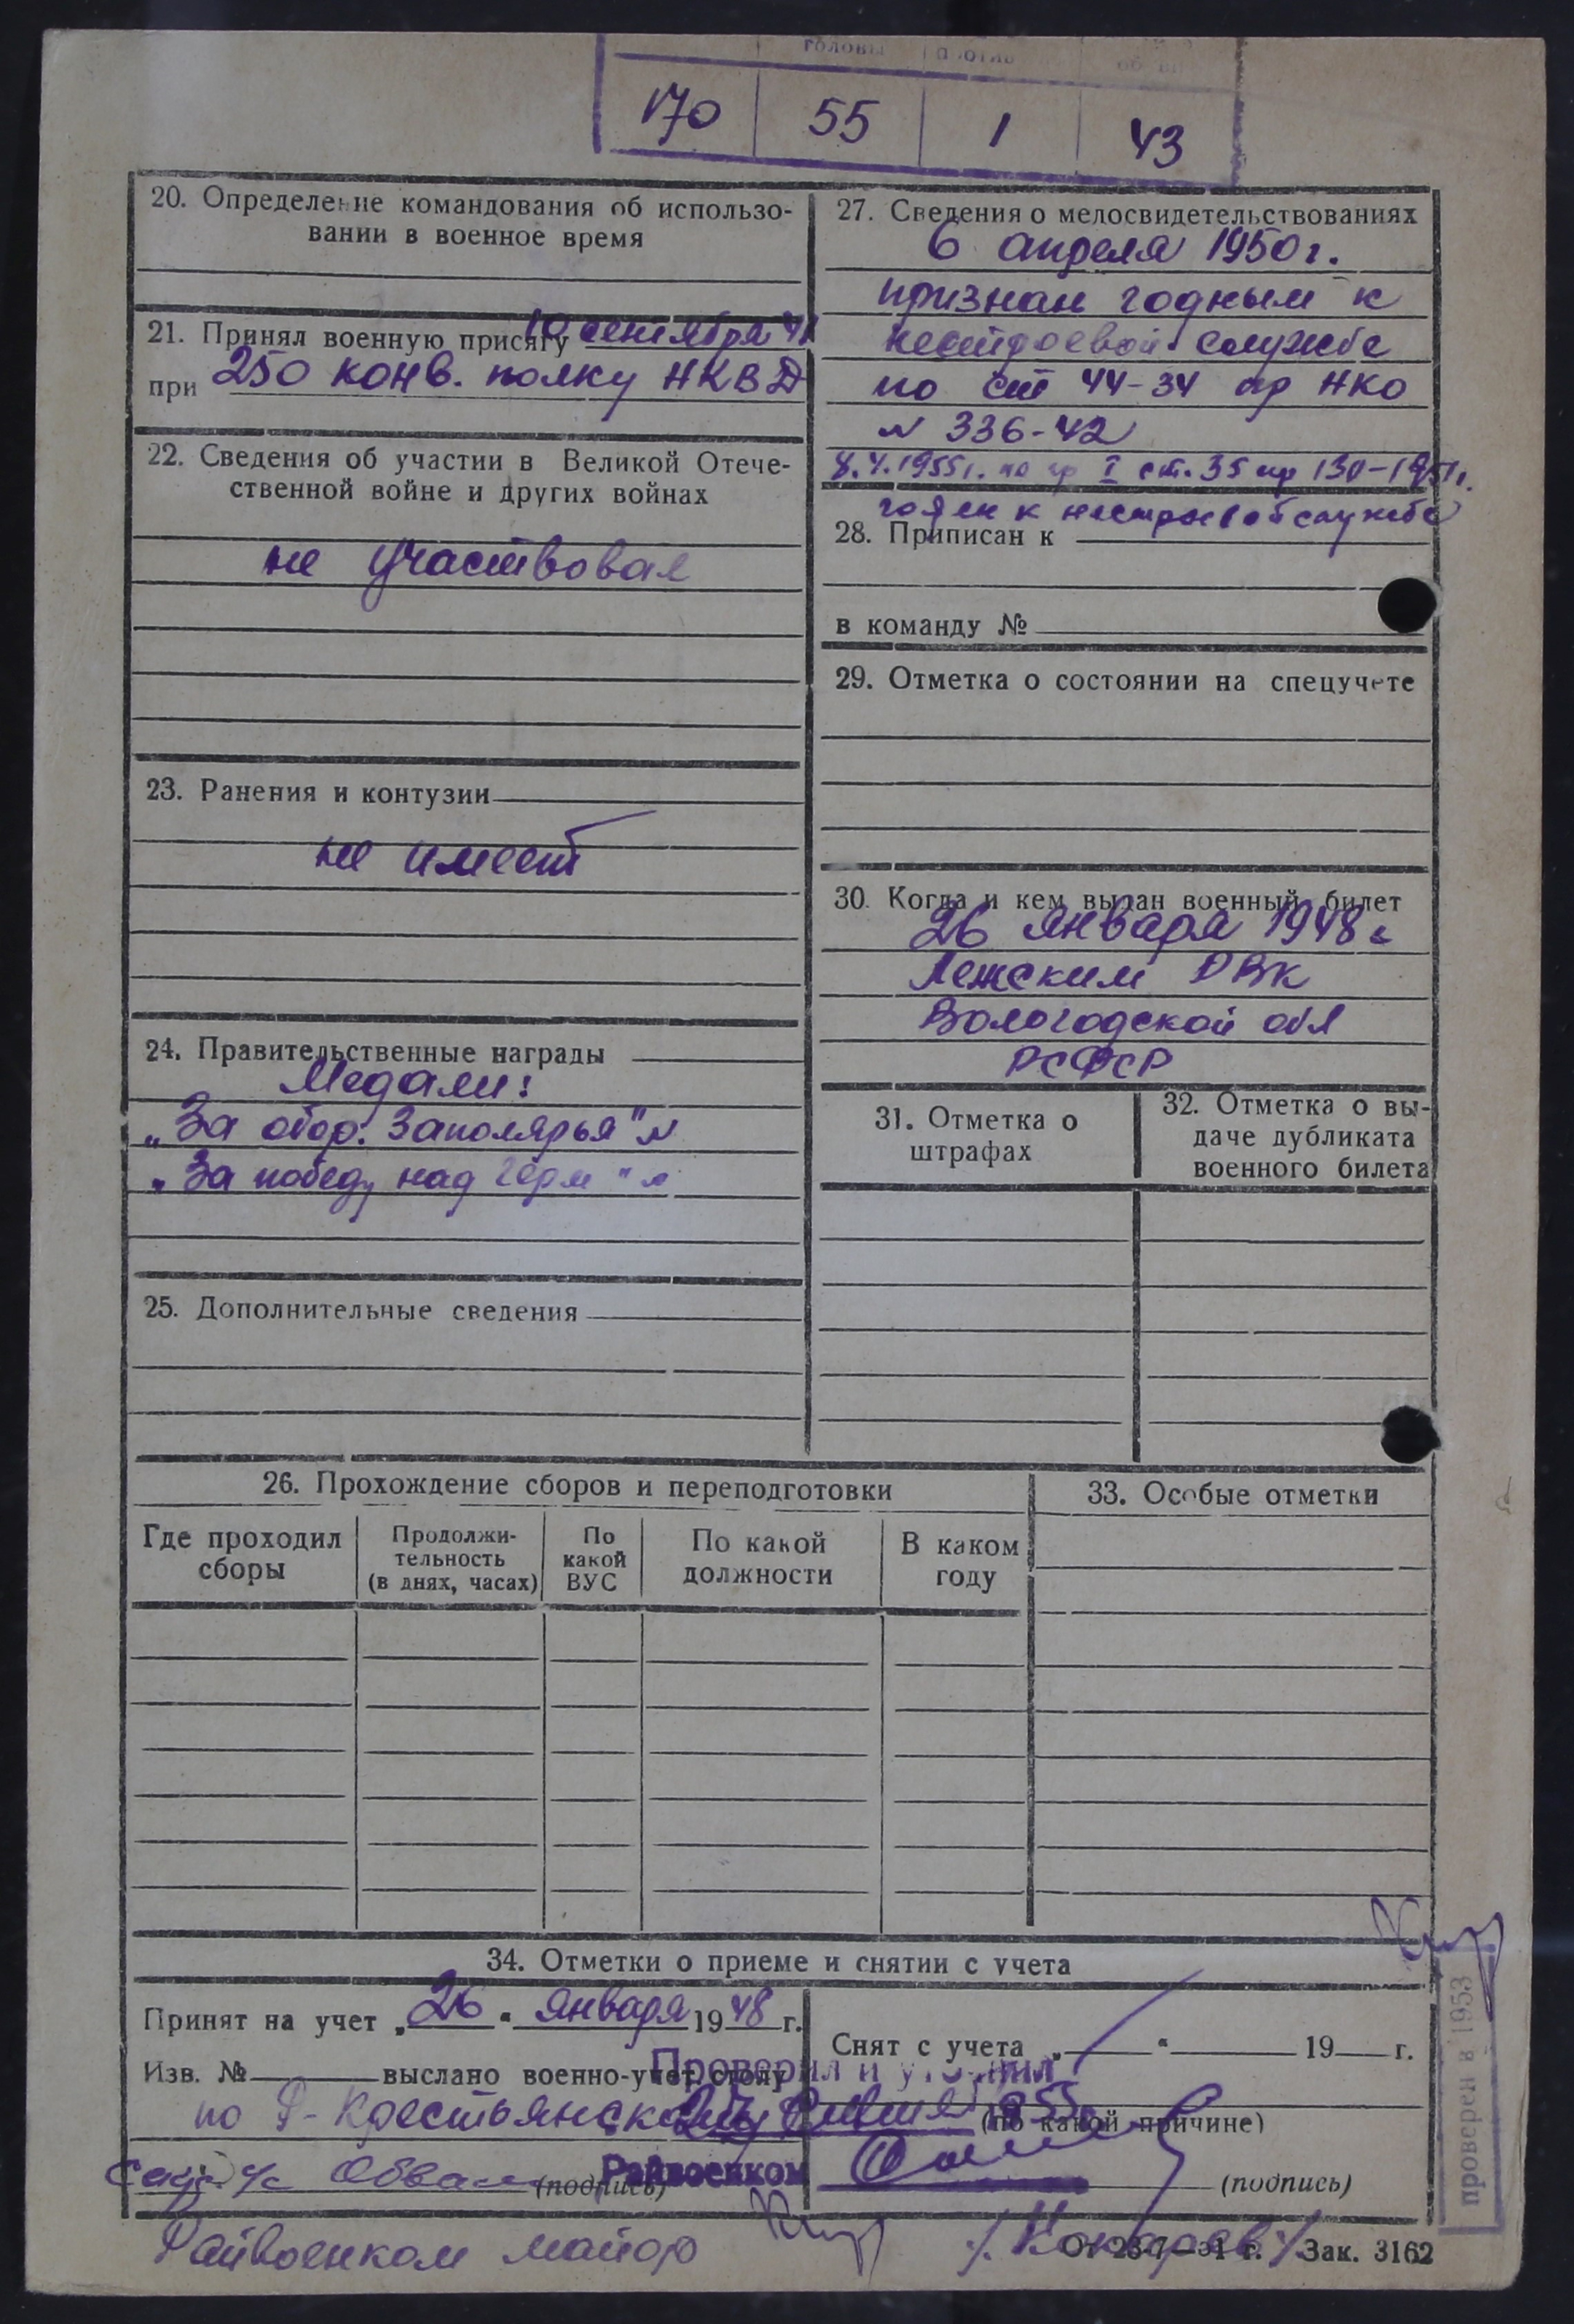 головы
170 55 1 43
20. Определение командования об использо-
вании в военное время
21. Принял военную присягу 10 сентября 41
при 250 конв. полку НКВД
22. Сведения об участии в Великой Отече-
ственной войне и других войнах
не участвовал
23. Ранения и контузии
не имеет
24. Правительственные награды
Медали:
„За обор. Заполярья" №
„За победу над Герм" №
25. Дополнительные сведения
27. Сведения о медосвидетельствованиях
6 апреля 1950 г.
признан годным к
нестроевой службе
по ст 44-34 пр НКО
№ 336-42
8.4.1955 г. по гр I ст. 35 пр 130-1951 г.
годен к нестроевой службе
28. Приписан к
в команду №
29. Отметка о состоянии на спецучете
30. Когда и кем выдан военный билет
26 января 1948 г
Лежским РВК
Вологодской обл
РСФСР
31. Отметка о
штрафах
32. Отметка о вы-
даче дубликата
военного билета
26. Прохождение сборов и переподготовки
Где проходил
сборы
Продолжи-
тельность
(в днях, часах)
По
какой
ВУС
По какой
должности
В каком
году
33. Особые отметки
34. Отметки о приеме и снятии с учета
Принят на учет „26" января 1948 г.
Изв. № выслано военно-учет. столу
по Р-Крестьянскому
(подпись)
Райвоенком майор
Снят с учета „ " 19 г.
Проверил и уточнил
(по какой причине)
Райвоенком
(подпись)
Зак. 3162
проверен в 1953